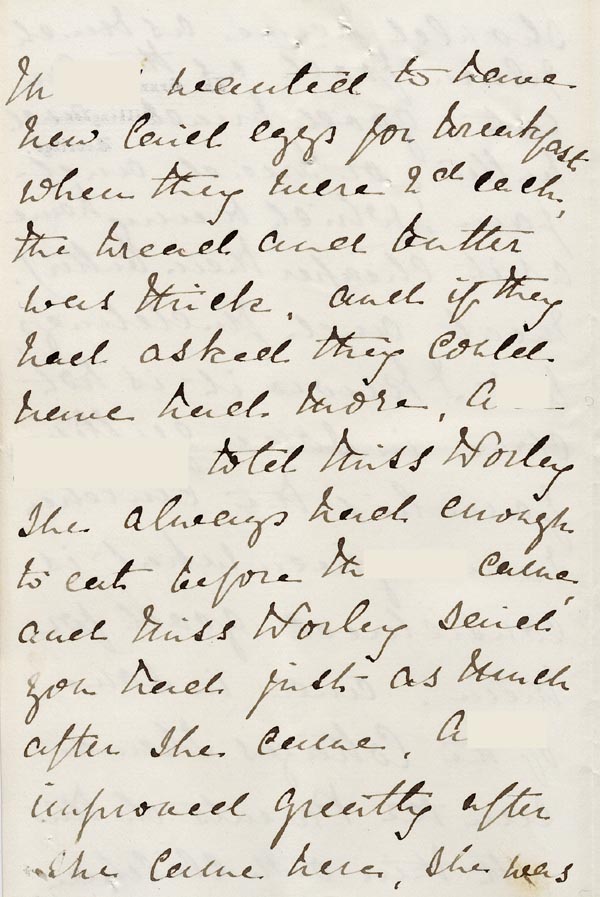 M wanted to have
new laid eggs for breakfast
when they were 2d each,
the bread and butter
was thick, and if they
had asked they could
have had more, A —
told Miss Worley
she always had enough
to eat before M came,
and Miss Worley said
you had just as much
after she came. A
improved greatly after
she came here, she was